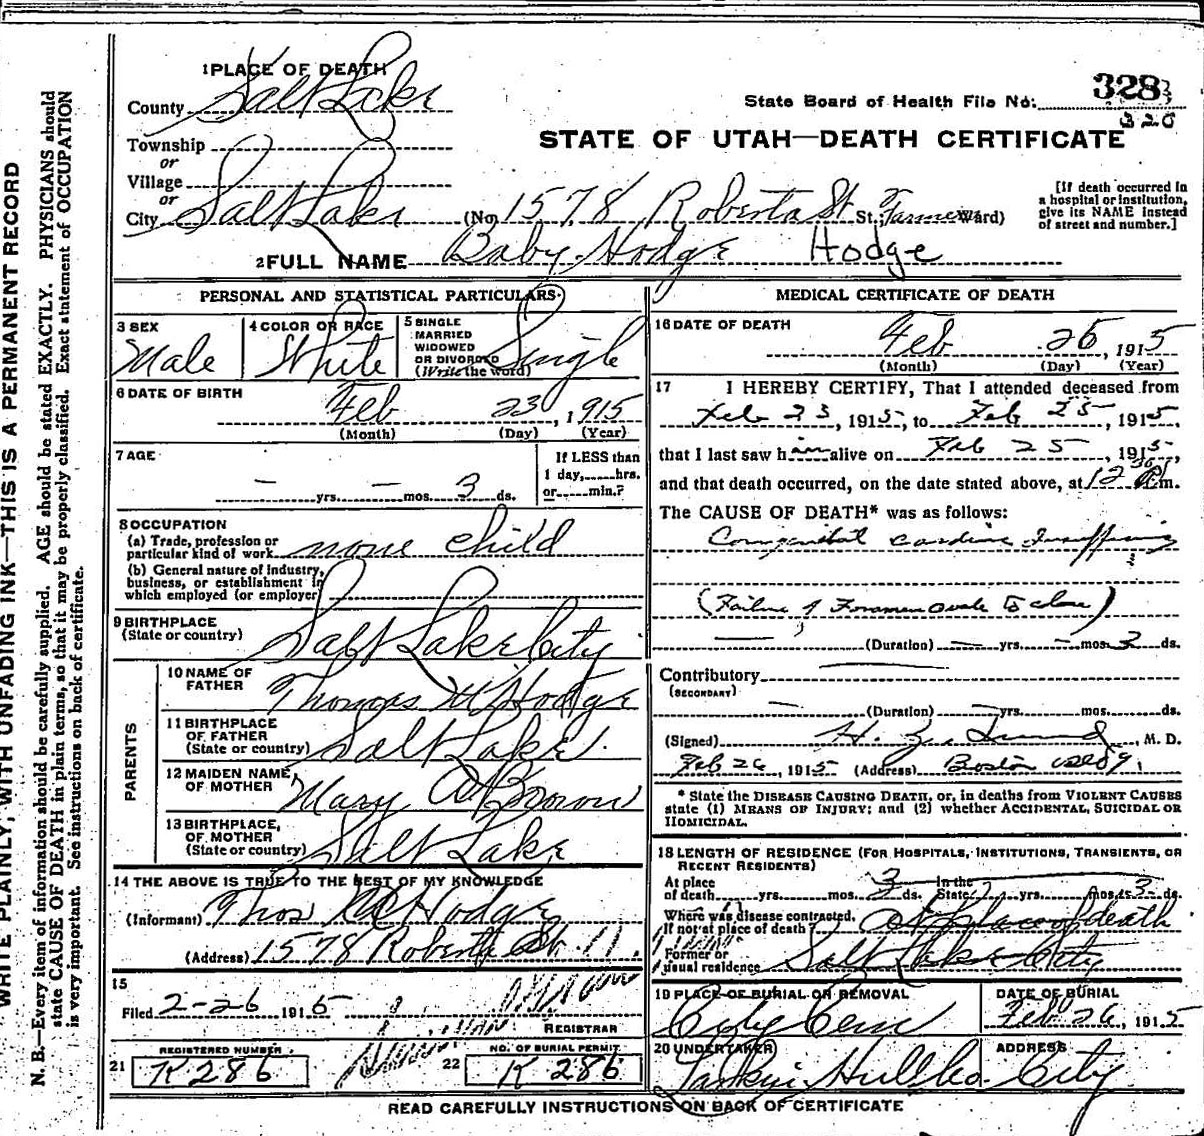 WRITE PLAINLY, WITH UNFADING INK—THIS IS A PERMANENT RECORD
N. B.—Every item of information should be carefully supplied. AGE should be stated EXACTLY. PHYSICIANS should
state CAUSE OF DEATH in plain terms, so that it may be properly classified. Exact statement of OCCUPATION
is very important. See instructions on back of certificate.
1 PLACE OF DEATH
County Salt Lake
State Board of Health File No. 328
320
STATE OF UTAH—DEATH CERTIFICATE
Township
or
Village
or
City Salt Lake (No. 1578 Roberta St St. Farmers Ward)
[If death occurred in
a hospital or institution,
give its NAME instead
of street and number.]
2 FULL NAME Baby Hodge Hodge
PERSONAL AND STATISTICAL PARTICULARS
3 SEX Male
4 COLOR OR RACE White
5 SINGLE
MARRIED
WIDOWED
OR DIVORCED
(Write the word) Single
6 DATE OF BIRTH
Feb 23, 1915
(Month) (Day) (Year)
7 AGE
— yrs. — mos. 3 ds.
If LESS than
1 day,.....hrs.
or.....min.?
8 OCCUPATION
(a) Trade, profession or
particular kind of work none child
(b) General nature of industry,
business, or establishment in
which employed (or employer)
9 BIRTHPLACE
(State or country) Salt Lake City
PARENTS
10 NAME OF
FATHER Thomas W Hodge
11 BIRTHPLACE
OF FATHER
(State or country) Salt Lake
12 MAIDEN NAME
OF MOTHER Mary A Brown
13 BIRTHPLACE,
OF MOTHER
(State or country) Salt Lake
14 THE ABOVE IS TRUE TO THE BEST OF MY KNOWLEDGE
(Informant) Thos Hodge
(Address) 1578 Roberta St.
15
Filed 2-26 1915
REGISTRAR
21 REGISTERED NUMBER
K 286
22 NO. OF BURIAL PERMIT
K 286
MEDICAL CERTIFICATE OF DEATH
16 DATE OF DEATH
Feb 26, 1915
(Month) (Day) (Year)
17 I HEREBY CERTIFY, That I attended deceased from
Feb 23, 1915, to Feb 25, 1915,
that I last saw him alive on Feb 25, 1915,
and that death occurred, on the date stated above, at 12 30 m.
The CAUSE OF DEATH* was as follows:
Congenital cardiac Insufficiency
(Failure of Foramen Ovale to close)
(Duration) — yrs. — mos. 3 ds.
Contributory
(SECONDARY)
(Duration) yrs. mos. ds.
(Signed) H. Z. Lund, M. D.
Feb 26, 1915 (Address) Boston Bldg.
* State the DISEASE CAUSING DEATH, or, in deaths from VIOLENT CAUSES
state (1) MEANS OF INJURY; and (2) whether ACCIDENTAL, SUICIDAL OR
HOMICIDAL.
18 LENGTH OF RESIDENCE (FOR HOSPITALS, INSTITUTIONS, TRANSIENTS, OR
RECENT RESIDENTS)
At place
of death yrs. mos. 3 ds. In the
State yrs. mos. 3 ds.
Where was disease contracted,
If not at place of death? At place of death
Former or
usual residence Salt Lake City
19 PLACE OF BURIAL OR REMOVAL
City Cem
DATE OF BURIAL
Feb 26, 1915
20 UNDERTAKER
Larkin Hull Co.
ADDRESS
City
READ CAREFULLY INSTRUCTIONS ON BACK OF CERTIFICATE